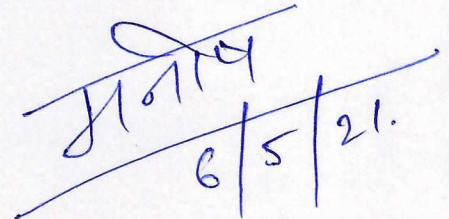 मनोष
6/5/21.